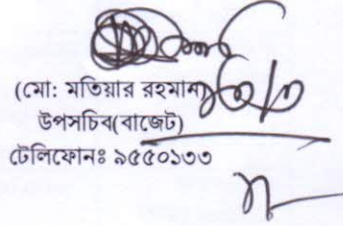 (মো: মতিয়ার রহমান)
উপসচিব(বাজেট)
টেলিফোনঃ ৯৫৫০১৩৩